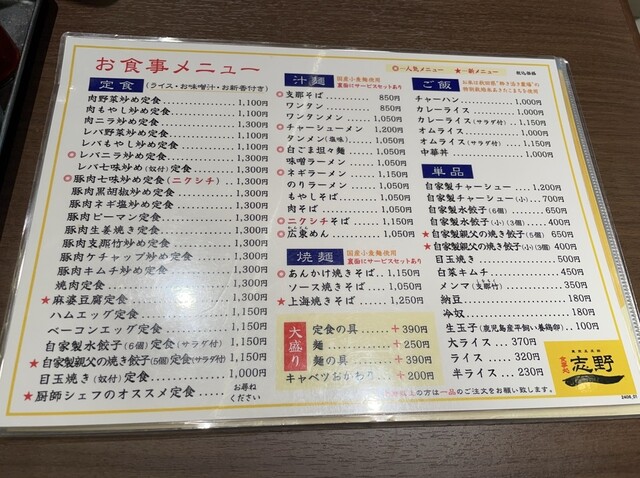 お食事メニュー
◎…人気メニュー ★…新メニュー 税込価格
定食 (ライス・お味噌汁・お新香付き)
肉野菜炒め定食 1,100円
肉もやし炒め定食 1,100円
肉ニラ炒め定食 1,300円
レバ野菜炒め定食 1,100円
レバもやし炒め定食 1,100円
◎レバニラ炒め定食 1,300円
レバ七味炒め(奴付)定食 1,300円
◎豚肉七味炒め定食(ニクシチ) 1,300円
豚肉黒胡椒炒め定食 1,300円
豚肉ネギ塩炒め定食 1,300円
豚肉ピーマン定食 1,300円
豚肉生姜焼き定食 1,300円
豚肉支那竹炒め定食 1,300円
豚肉ケチャップ炒め定食 1,300円
豚肉キムチ炒め定食 1,300円
焼肉定食 1,300円
★麻婆豆腐定食 1,300円
ハムエッグ定食 1,150円
ベーコンエッグ定食 1,150円
自家製水餃子(6個)定食(サラダ付) 1,150円
★自家製親父の焼き餃子(5個)定食(サラダ付) 1,150円
目玉焼き(奴付)定食 1,000円
★厨師シェフのオススメ定食 お尋ねください
汁麺 国産小麦麺使用
裏面にサービスセットあり
◎支那そば 850円
ワンタン 850円
ワンタンメン 1,050円
◎チャーシューメン 1,200円
タンメン(塩味) 1,050円
◎白ごま担々麺 1,050円
味噌ラーメン 1,050円
◎ネギラーメン 1,150円
のりラーメン 1,050円
もやしそば 1,050円
肉そば 1,050円
◎ニクシチそば 1,050円
◎広東めん 1,050円
焼麺 国産小麦麺使用
裏面にサービスセットあり
◎あんかけ焼きそば 1,150円
ソース焼きそば 1,050円
★上海焼きそば 1,250円
大盛り
定食の具 +390円
麺 +250円
麺の具 +390円
キャベツおかわり +200円
ご飯
チャーハン 1,000円
カレーライス 1,000円
カレーライス(サラダ付) 1,150円
オムライス 1,000円
オムライス(サラダ付) 1,150円
中華丼 1,000円
単品
自家製チャーシュー 1,200円
自家製チャーシュー(小) 700円
自家製水餃子(6個) 650円
自家製水餃子(小)(3個) 400円
★自家製親父の焼き餃子(5個) 650円
★自家製親父の焼き餃子(小)(3個) 400円
目玉焼き 500円
白菜キムチ 450円
メンマ(支那竹) 350円
納豆 180円
冷奴 180円
生玉子(鹿児島産平飼い養鶏卵) 100円
大ライス 370円
ライス 320円
半ライス 230円
の方は一品のご注文をお願い致します。
志野